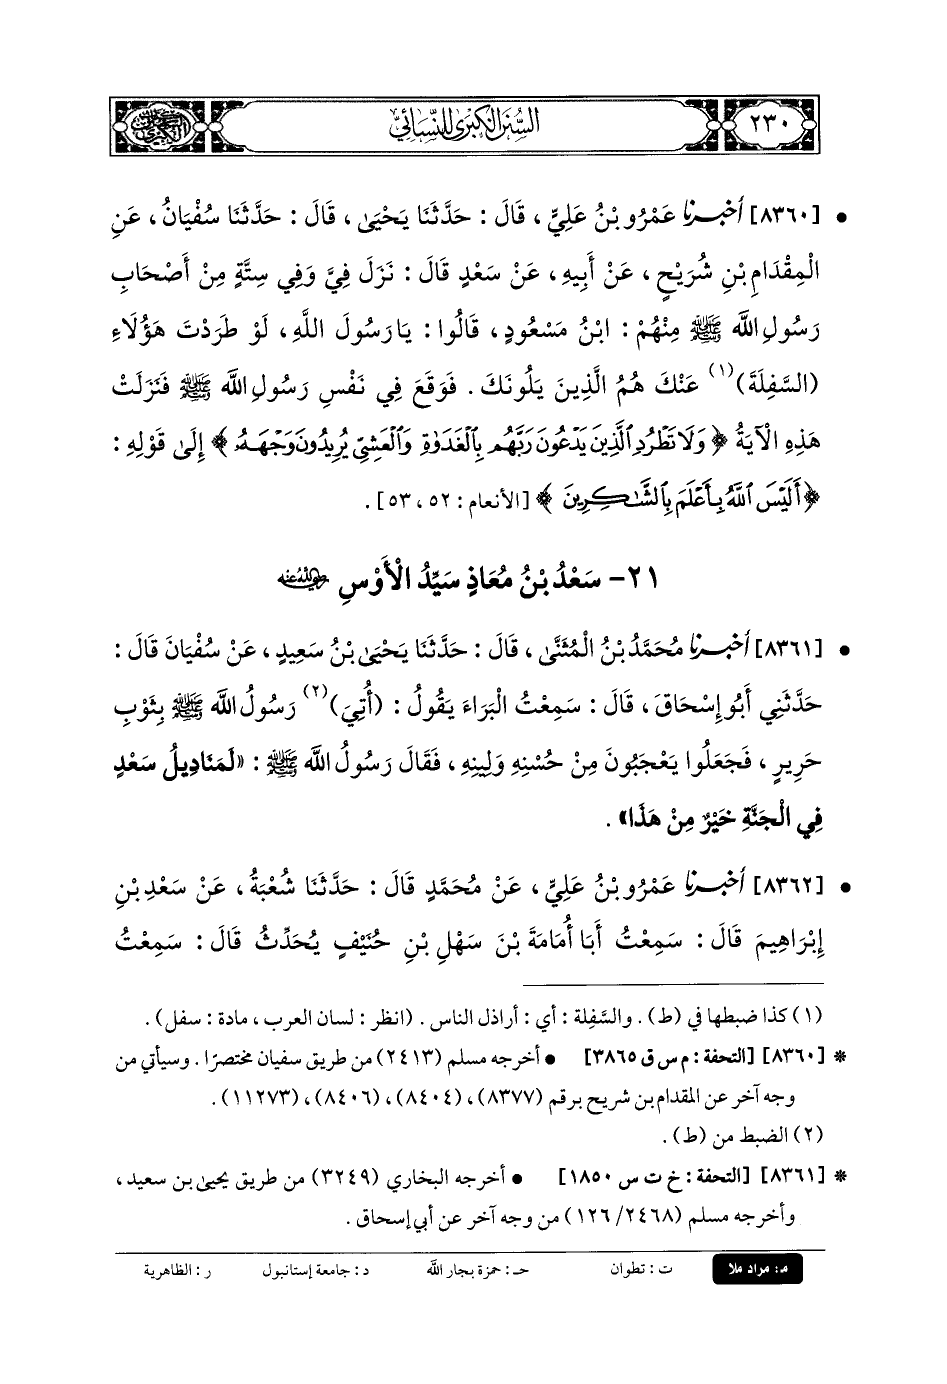 ٢٣٠
السُّنَنُ الكِبْرَىٰ لِلنَّسَائِيِّ
• [٨٣٦٠] أَخْبَرَنَا عَمْرُو بْنُ عَلِيٍّ ، قَالَ : حَدَّثَنَا يَحْيَىٰ ، قَالَ : حَدَّثَنَا سُفْيَانُ ، عَنِ
الْمِقْدَامِ بْنِ شُرَيْحٍ ، عَنْ أَبِيهِ ، عَنْ سَعْدٍ قَالَ : نَزَلَ فِيَّ وَفِي سِتَّةٍ مِنْ أَصْحَابِ
رَسُولِ اللَّه ﷺ مِنْهُمْ : ابْنُ مَسْعُودٍ ، قَالُوا : يَا رَسُولَ اللهِ ، لَوْ طَرَدْتَ هَؤُلَاءِ
(السَّفِلَةَ)(١) عَنْكَ هُمُ الَّذِينَ يَلُونَكَ . فَوَقَعَ فِي نَفْسِ رَسُولِ اللَّه ﷺ فَنَزَلَتْ
هَذِهِ الْآيَةُ ﴿ وَلَا تَطْرُدِ ٱلَّذِينَ يَدْعُونَ رَبَّهُم بِٱلْغَدَوٰةِ وَٱلْعَشِيِّ يُرِيدُونَ وَجْهَهُۥ ﴾ إِلَىٰ قَوْلِهِ :
﴿ أَلَيْسَ ٱللَّهُ بِأَعْلَمَ بِٱلشَّٰكِرِينَ ﴾ [الأنعام : ٥٢ ، ٥٣] .
٢١- سَعْدُ بْنُ مُعَاذٍ سَيِّدُ الْأَوْسِ رضي الله عنه
• [٨٣٦١] أَخْبَرَنَا مُحَمَّدُ بْنُ الْمُثَنَّىٰ ، قَالَ : حَدَّثَنَا يَحْيَىٰ بْنُ سَعِيدٍ ، عَنْ سُفْيَانَ قَالَ :
حَدَّثَنِي أَبُو إِسْحَاقَ ، قَالَ : سَمِعْتُ الْبَرَاءَ يَقُولُ : (أُتِيَ)(٢) رَسُولُ اللَّه ﷺ بِثَوْبِ
حَرِيرٍ ، فَجَعَلُوا يَعْجَبُونَ مِنْ حُسْنِهِ وَلِينِهِ ، فَقَالَ رَسُولُ اللَّه ﷺ : «لَمَنَادِيلُ سَعْدٍ
فِي الْجَنَّةِ خَيْرٌ مِنْ هَذَا» .
• [٨٣٦٢] أَخْبَرَنَا عَمْرُو بْنُ عَلِيٍّ ، عَنْ مُحَمَّدٍ قَالَ : حَدَّثَنَا شُعْبَةُ ، عَنْ سَعْدِ بْنِ
إِبْرَاهِيمَ قَالَ : سَمِعْتُ أَبَا أُمَامَةَ بْنَ سَهْلِ بْنِ حُنَيْفٍ يُحَدِّثُ قَالَ : سَمِعْتُ
(١) كذا ضبطها في (ط) . والسَّفِلة : أي : أراذل الناس . (انظر : لسان العرب ، مادة : سفل) .
* [٨٣٦٠] [التحفة : م س ق ٣٨٦٥] • أخرجه مسلم (٢٤١٣) من طريق سفيان مختصرًا . وسيأتي من
وجه آخر عن المقدام بن شريح برقم (٨٣٧٧) ، (٨٤٠٤) ، (٨٤٠٦) ، (١١٢٧٣) .
(٢) الضبط من (ط) .
* [٨٣٦١] [التحفة : خ ت س ١٨٥٠] • أخرجه البخاري (٣٢٤٩) من طريق يحيىٰ بن سعيد ،
وأخرجه مسلم (١٢٦/٢٤٦٨) من وجه آخر عن أبي إسحاق .
م: مراد ملا ت : تطوان حـ : حمزة بجار الله د : جامعة إستانبول ر : الظاهرية